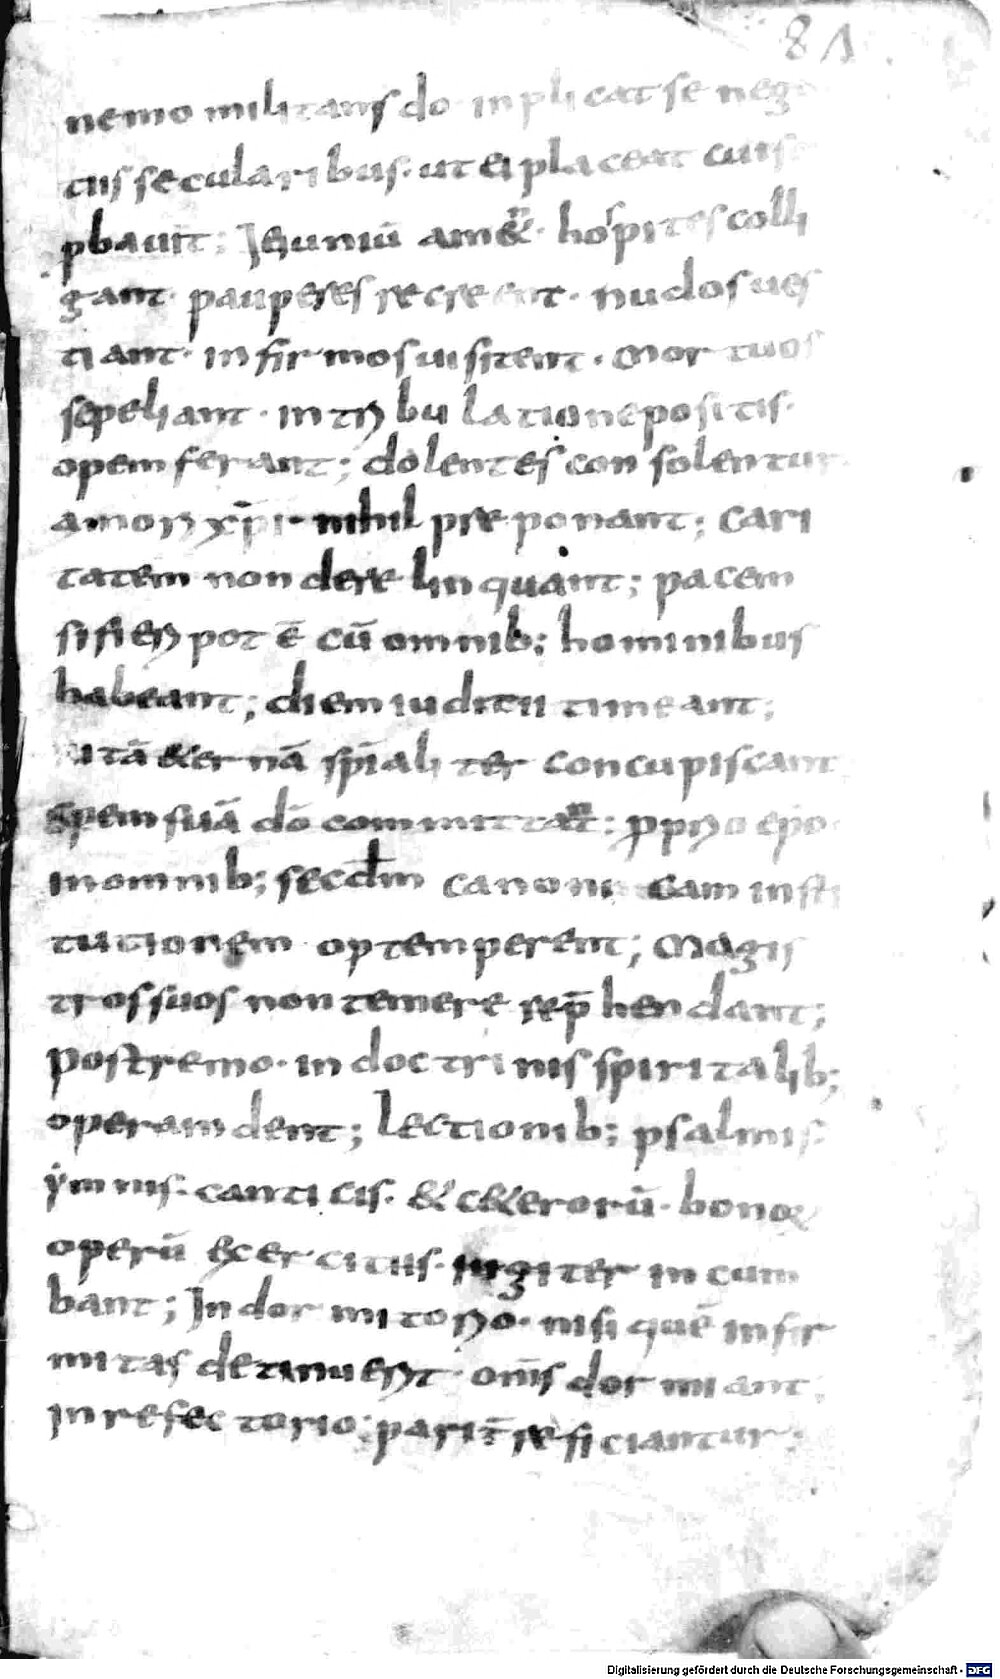 81
nemo militans do inplicat se nego
tiis secularibus · ut ei placeat cui s
pbauit ; Ieiuniū am&nt · hospites colli
gant · pauperes recreent · nudos ues
tiant · infirmos uisitent · mortuos
sepeliant · in tribulatione positis ·
opem ferant ; dolentes consolentur
amori xp̄i · nihil preponant ; cari
tatem non derelinquant ; pacem
si fieri pot ē cū omnib; hominibus
habeant ; diem iuditii timeant ;
uitā &ernā sp̄ialiter concupiscant
spem suā dō committant ; pprio ep̄o
in omnib; secdm canonicam insti
tutionem optemperent ; Magis
tros suos non temere rep̄hendant ;
postremo · in doctrinis spiritalib;
operam dent ; Lectionib; psalmis
ymnis · canticis · & c&erorū · bonoꝝ
operū exercitiis · iugiter incum
bant ; In dormitorio · nisi quē infir
mitas detinuerit · om̄s dormiant ;
in refectorio ; parit̄ reficiantur ;
Digitalisierung gefördert durch die Deutsche Forschungsgemeinschaft - DFG